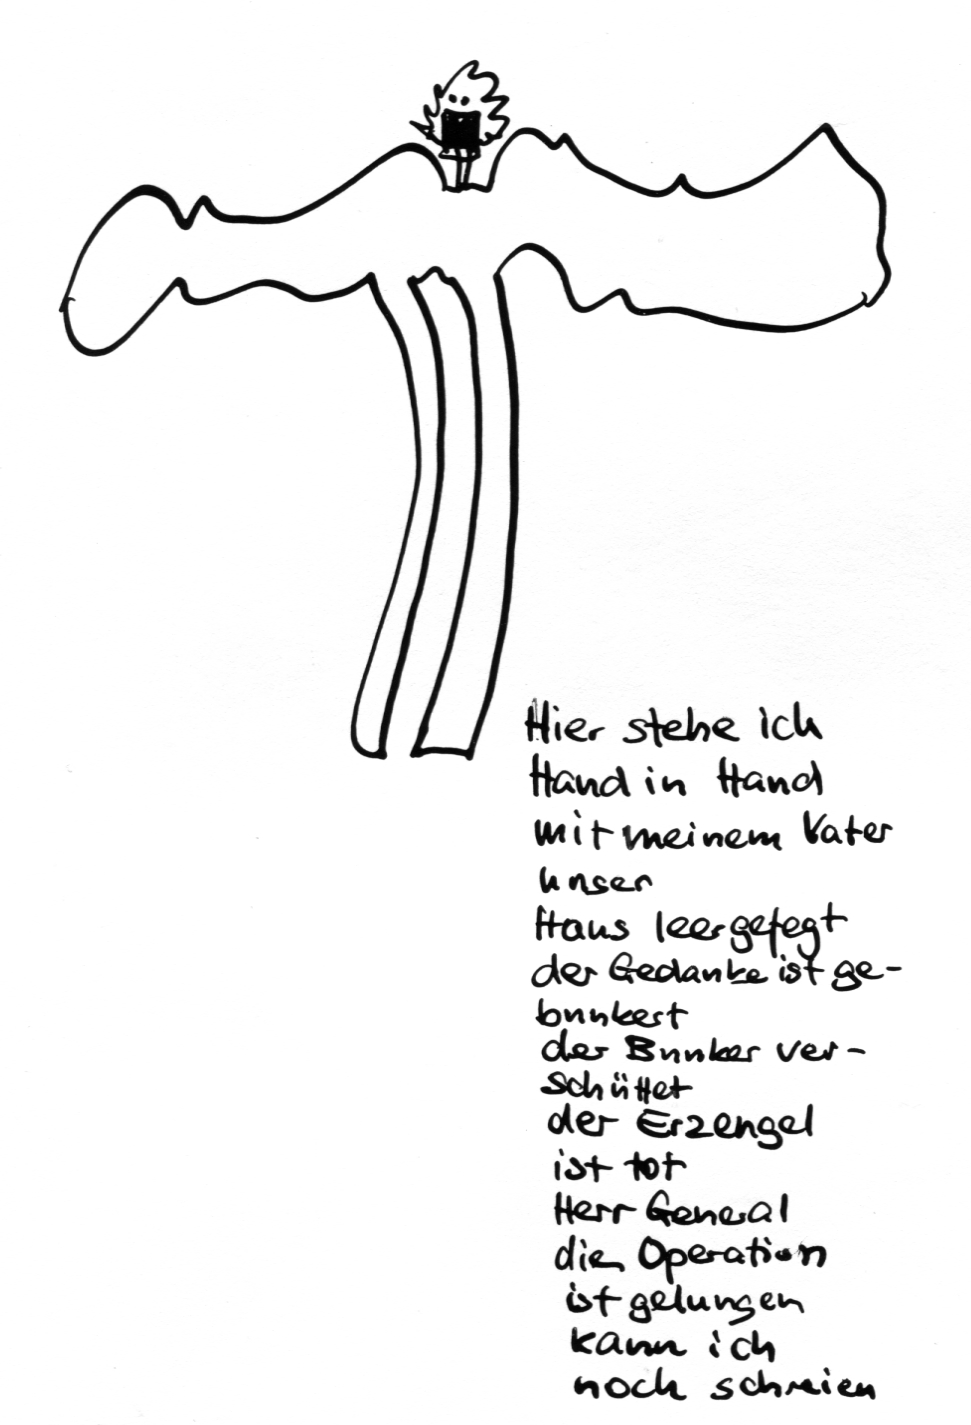 Hier stehe ich
Hand in Hand
mit meinem Vater
unser
Haus leergefegt
der Gedanke ist ge-
bunkert
der Bunker ver-
schüttet
der Erzengel
ist tot
Herr General
die Operation
ist gelungen
kann ich
noch schreien